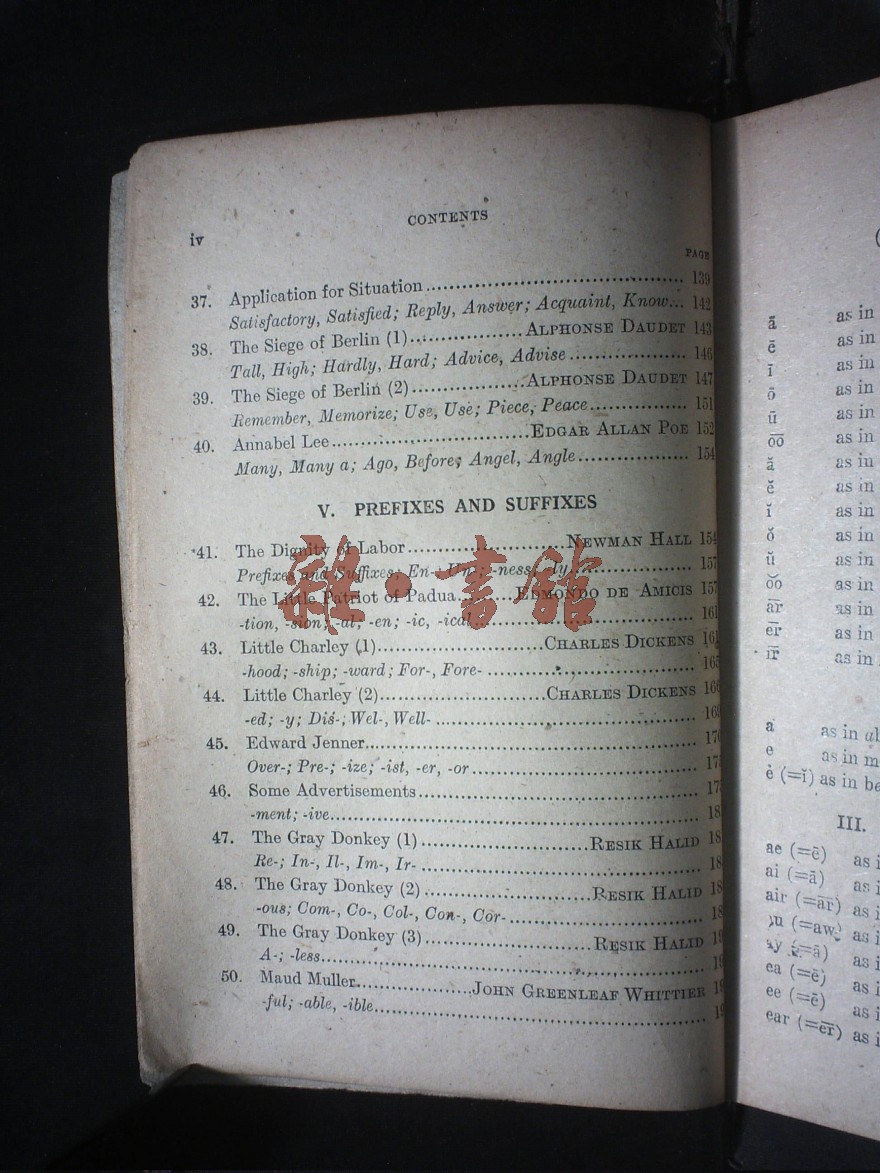 CONTENTS
iv
PAGE
37. Application for Situation 139
Satisfactory, Satisfied; Reply, Answer; Acquaint, Know... 142
38. The Siege of Berlin (1) ALPHONSE DAUDET 143
Tall, High; Hardly, Hard; Advice, Advise 146
39. The Siege of Berlin (2) ALPHONSE DAUDET 147
Remember, Memorize; Use, Use; Piece, Peace 151
40. Annabel Lee EDGAR ALLAN POE 152
Many, Many a; Ago, Before; Angel, Angle 154
V. PREFIXES AND SUFFIXES
41. The Dignity of Labor NEWMAN HALL 154
Prefixes and Suffixes; En-; Un-; -ness; -ly 157
42. The Little Patriot of Padua EDMONDO DE AMICIS 157
-tion, -sion; -al; -en; -ic, -ical 161
雜·書館
43. Little Charley (1) CHARLES DICKENS
-hood; -ship; -ward; For-, Fore- 165
44. Little Charley (2) CHARLES DICKENS
-ed; -y; Dis-; Wel-, Well- 169
45. Edward Jenner
Over-; Pre-; -ize; -ist, -er, -or
46. Some Advertisements
-ment; -ive
47. The Gray Donkey (1) RESIK HALID
Re-; In-, Il-, Im-, Ir-
48. The Gray Donkey (2) RESIK HALID
-ous; Com-, Co-, Col-, Con-, Cor-
49. The Gray Donkey (3) RESIK HALID
A-; -less
50. Maud Muller JOHN GREENLEAF WHITTIER
-ful; -able, -ible
ā as in
ē as in
ī as in
ō as in
ū as in
o͞o as in
ă as in
ĕ as in
ĭ as in
ŏ as in
ŭ as in
o͝o as in
a͞r as in
e͞r as in
i͞r as in
a as in
e as in
ė (=ĭ) as in
III.
ae (=ē) as
ai (=ā) as
air (=a͞r) as
(=aw) as
(=ā) as
ea (=ē) as
ee (=ē) as
ear (=e͞r) as